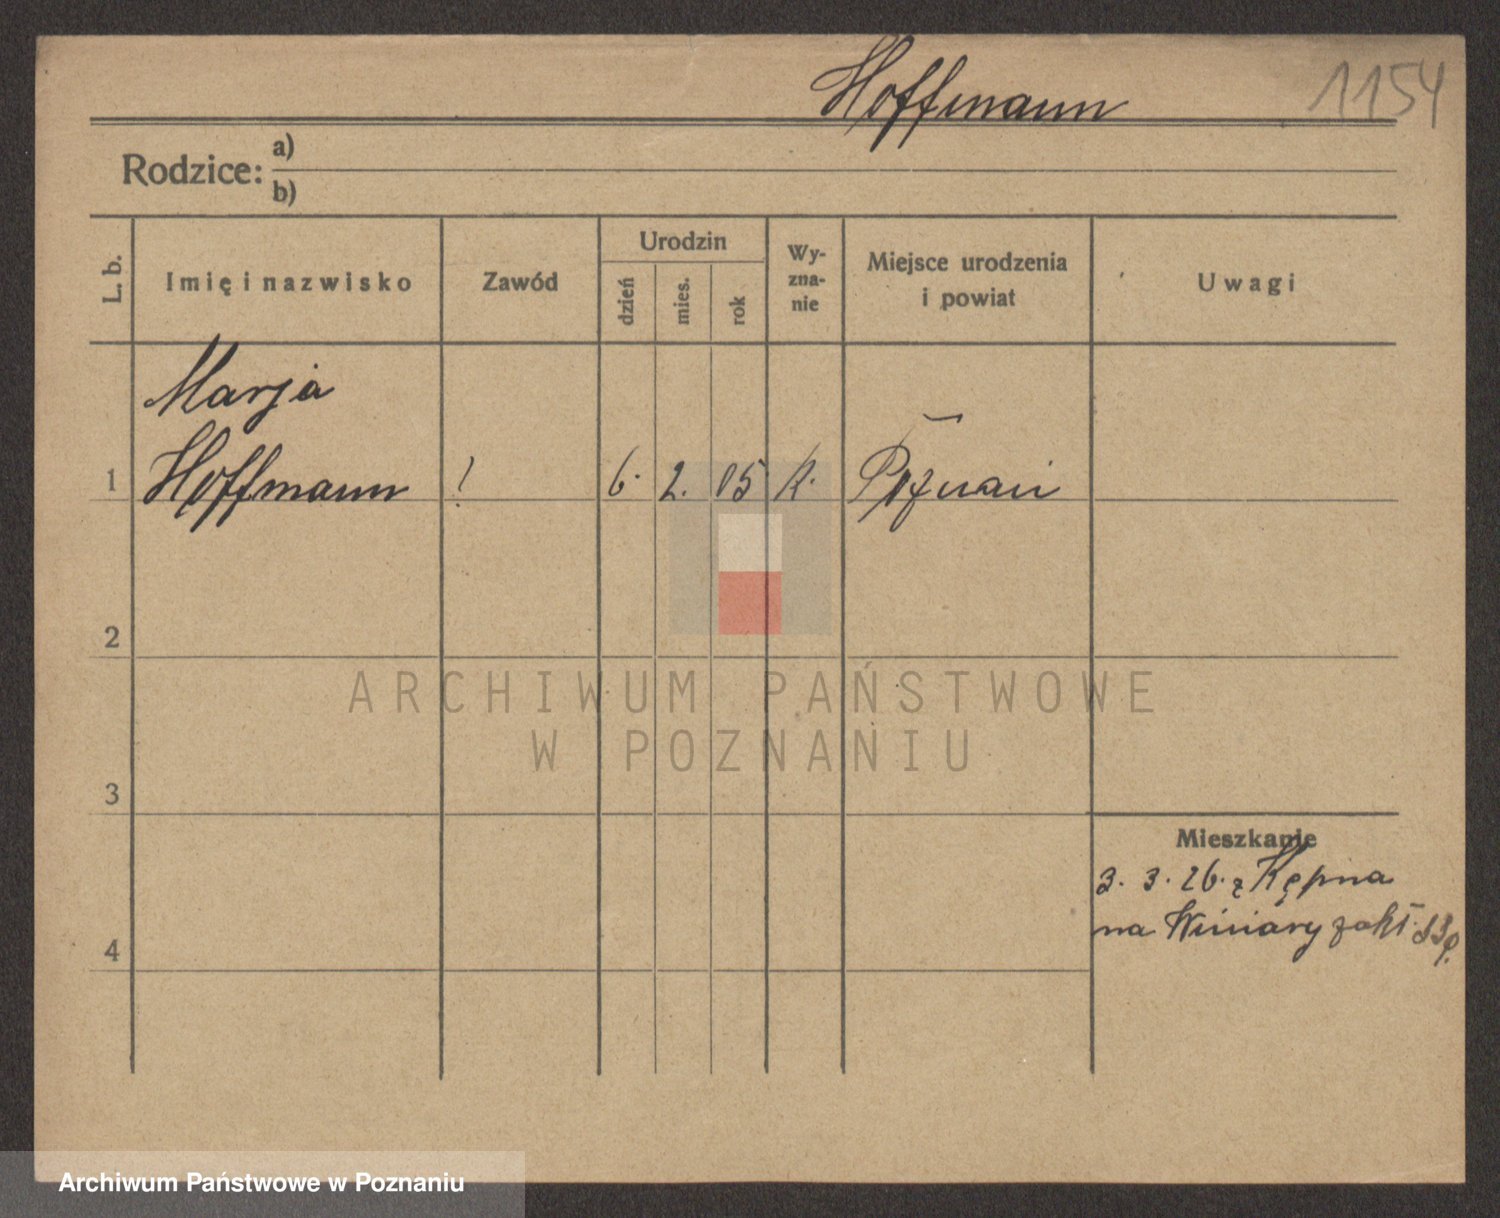 Hoffmann 1154
Rodzice: a)
b)
L. b.
Imię i nazwisko
Zawód
Urodzin
dzień
mies.
rok
Wy-
zna-
nie
Miejsce urodzenia
i powiat
Uwagi
Marja
1 Hoffmann ! 6. 2. 05 k. Poznań
2
3
4
Mieszkanie
3. 3. 26. z Kępna
na Winiary zakł.
ARCHIWUM PAŃSTWOWE
W POZNANIU
Archiwum Państwowe w Poznaniu